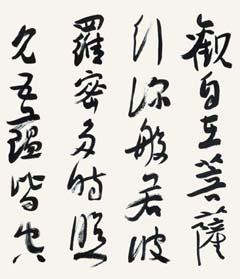 觀自在菩薩
行深般若波
羅密多時照
見五蘊皆空